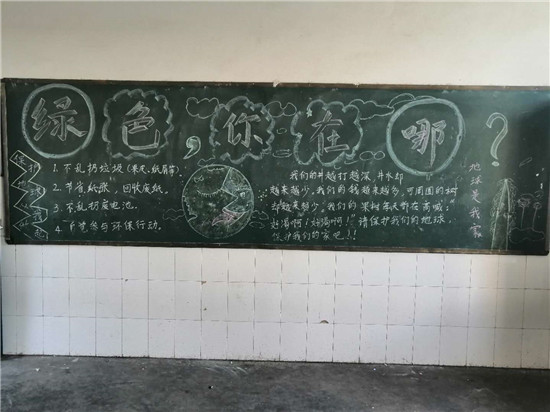 绿色,你在哪?
保护地球从我
1. 不乱扔垃圾(果壳、纸屑等)
2. 节省纸张、回收废纸。
3. 不乱扔废电池。
4. 自觉参与环保行动。
我们的井越打越深,井水却
越来越少,我们的钱越来越多,可周围的树
却越来越少,我们的果树年年都在高喊:"
好渴啊!好渴啊!"请保护我们的地球,
保护我们的家吧!!
地球是我家